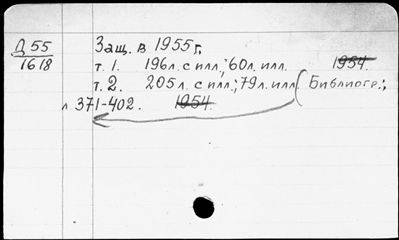 Д 55
1618
Защ. в 1955 г.
т. 1. 196 л. с илл.; 60 л. илл. 1954.
т. 2. 205 л. с илл.; 79 л. илл. (Библиогр.;
л 371-402. 1954.